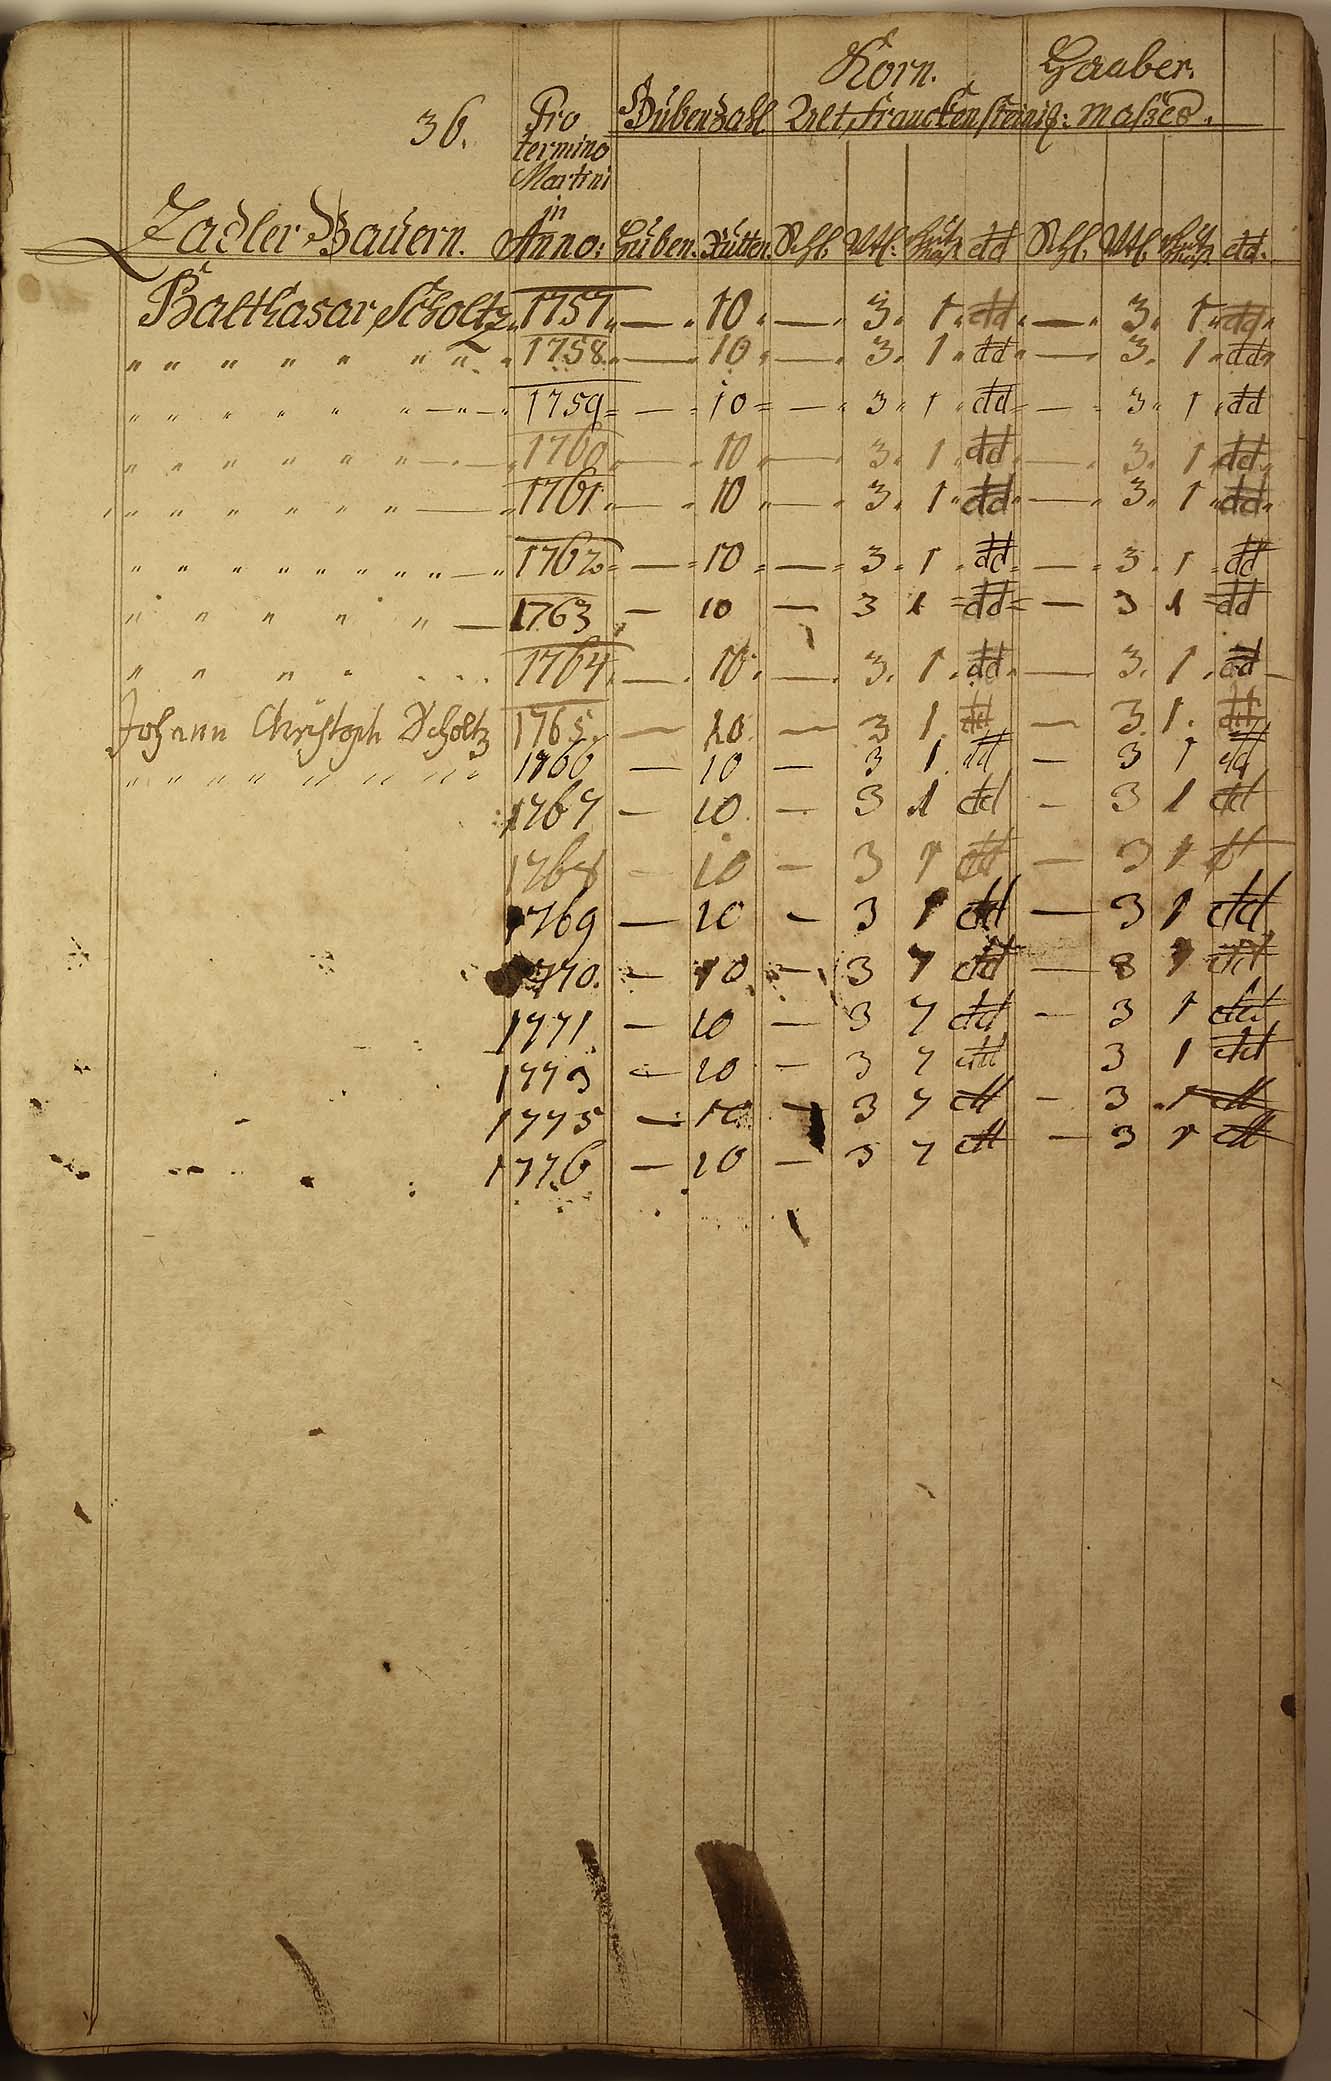 Korn. Haaber.
36. Pro Hubenzahl Alt, franckensteinig: Maßes.
termino
Martini
in
Zadler Bauern. Anno: Huben. Rutten. Schl. Vtl: dd Schl. Vtl. dd.
Balthasar Scholtz. 1757. — 10. — 3. 1. dd. — 3. 1. dd.
" " " " " " " 1758. — 10. — 3. 1. dd — 3. 1. dd
" " " " " " — " — 1759 — 10 — 3. 1. dd — 3. 1. dd
" " " " " " " — . — 1760. — 10 — 3. 1. dd. — 3. 1. dd.
" " " " " " " — 1761. — 10 — 3. 1. dd — 3. 1. dd
" " " " " " " " " — 1762 — 10 — 3. 1. dd — 3. 1. dd
" " " " " — 1763 — 10 — 3 1 dd — 3 1 dd
" " " " . . . 1764. — 10. — 3. 1. dd. — 3. 1. dd
Johann Christoph Scholtz 1765. — 10. — 3 1. dd — 3. 1. dd
" " " " " " " " " 1766 — 10 — 3 1 dd — 3 1 dd
1767 — 10 — 3 1 dd — 3 1 dd
1768 — 10 — 3 1 dd — 3 1 d
1769 — 10 — 3 1 dd — 3 1 dd
1770. — 10 — 3 1 dd — 3 1 dd
1771 — 10 — 3 1 dd — 3 1 dd
1773 — 10 — 3 1 dd 3 1 dd
1775 — 10 — 3 1 dd — 3 1 dd
1776 — 10 — 3 1 dd — 3 1 dd